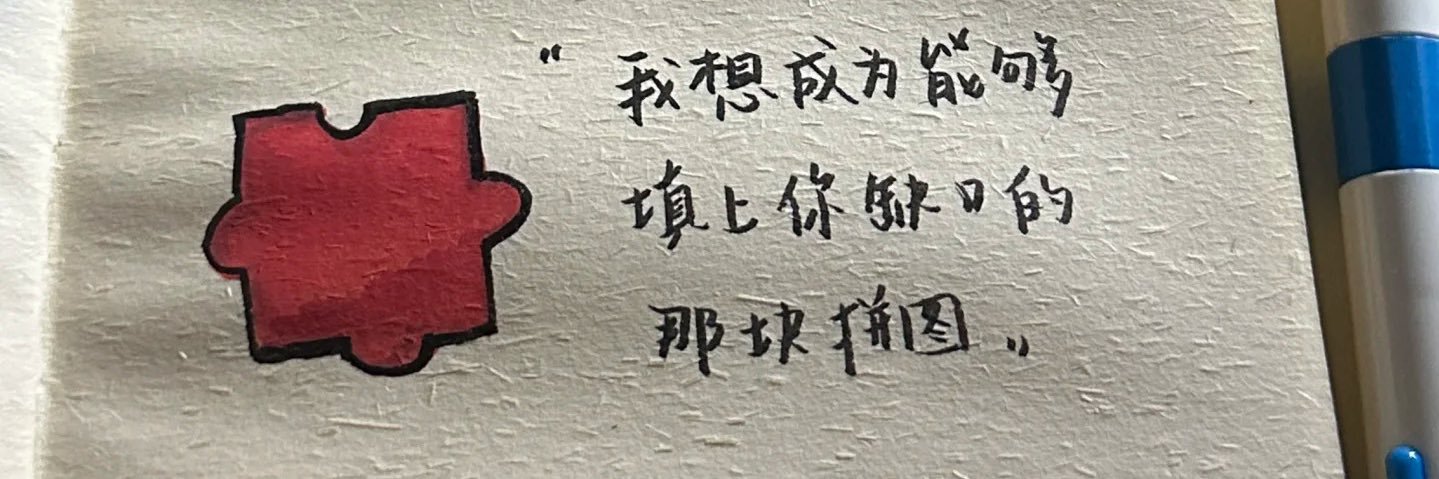 “我想成为能够
填上你缺口的
那块拼图”